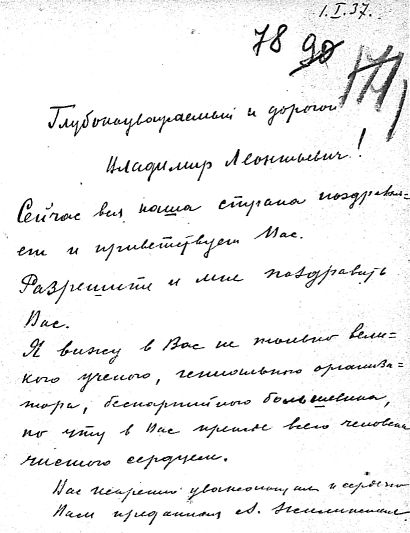 1.I.37.
78 90
171
Глубокоуважаемый и дорогой
Владимир Леонтьевич!
Сейчас вся наша страна поздравля-
ет и приветствует Вас.
Разрешите и мне поздравить
Вас.
Я вижу в Вас не только вели-
кого ученого, гениального организа-
тора, беспартийного большевика,
но чту в Вас прежде всего человека
чистого сердцем.
Вас искренно уважающая и сердечно
Вам преданная А.